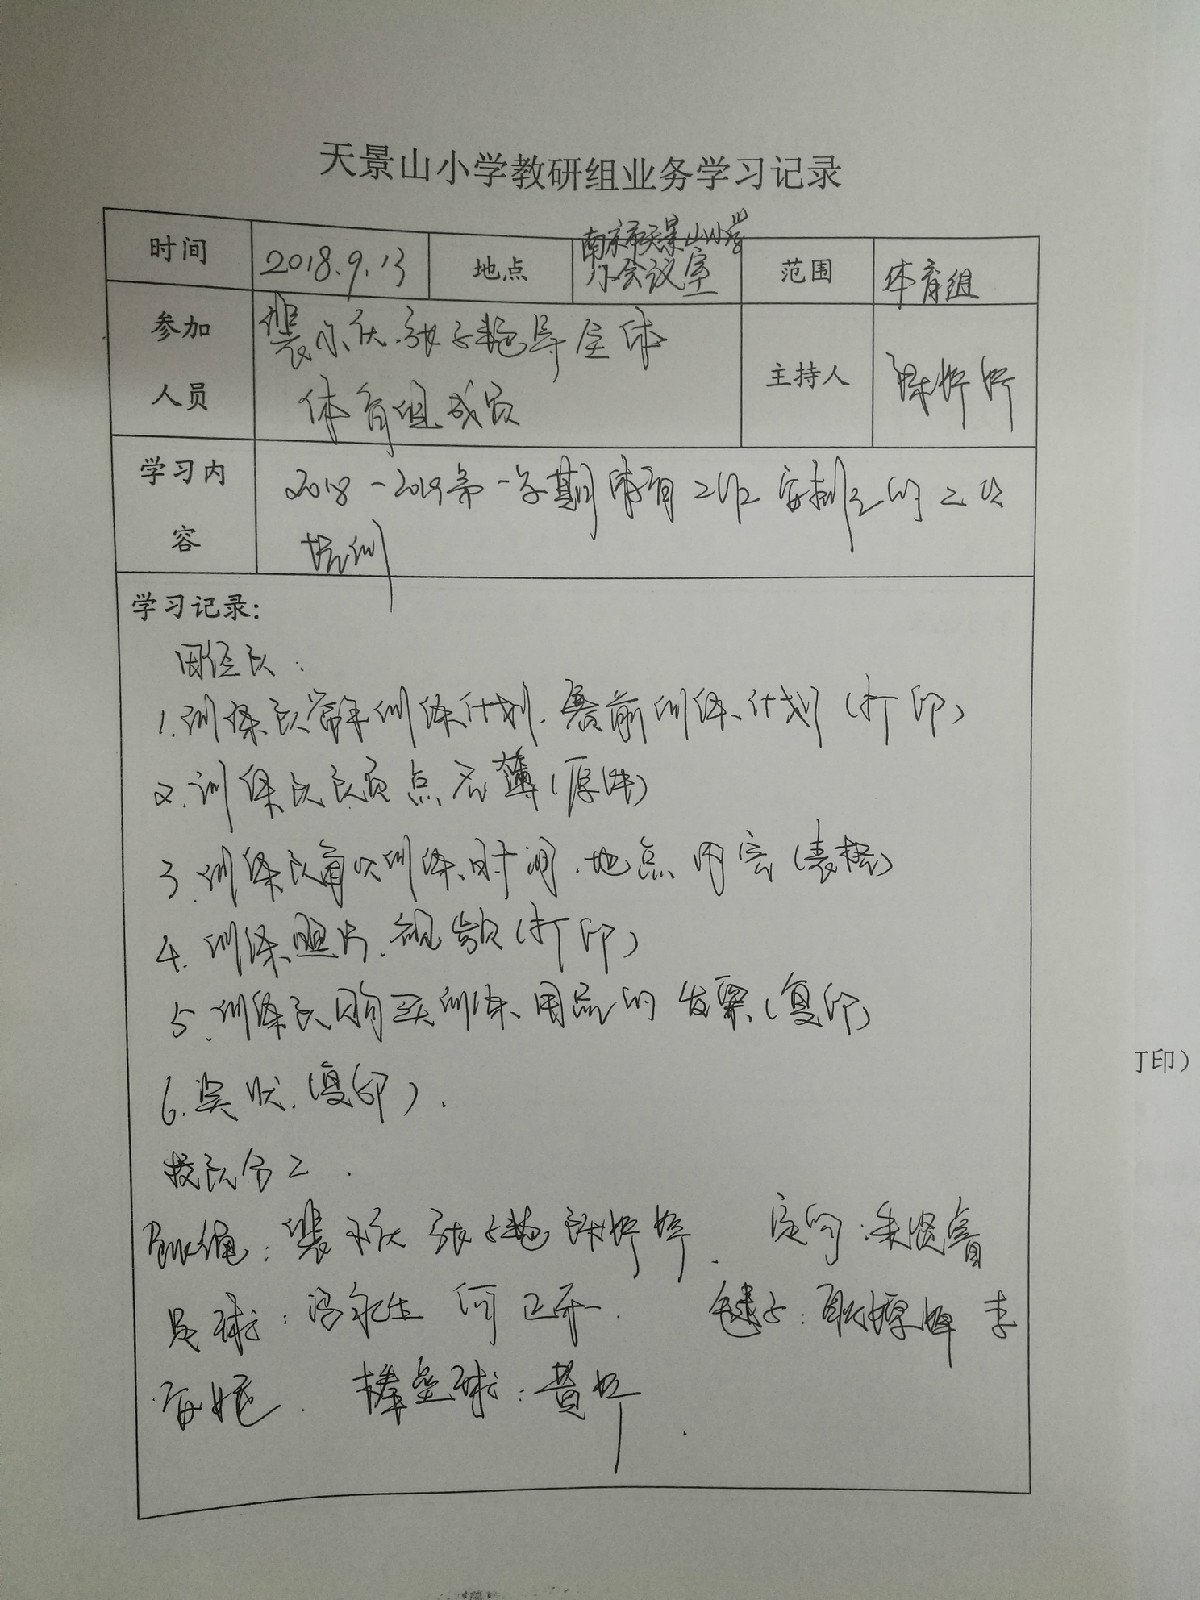 天景山小学教研组业务学习记录
时间 2018.9.13 地点 南京市天景山小学 范围 体育组
小会议室
参加 裴永庆、张子艳等全体
人员 体育组成员 主持人 陈婷婷
学习内 2018-2019第一学期体育工作安排
容 培训
学习记录:
田径队:
1.训练队常年训练计划、赛前训练计划(打印)
2.训练队队员点名簿(原件)
3.训练队每次训练时间、地点内容(表格)
4.训练照片、视频(打印)
5.训练队购买训练用品的发票(复印)
6.奖状(复印).
校队分工.
跳绳:裴永庆 张子艳 陈婷婷. 定向:朱贤
足球:冯永生 何正 毽子: 李
棒垒球:黄婷
打印)